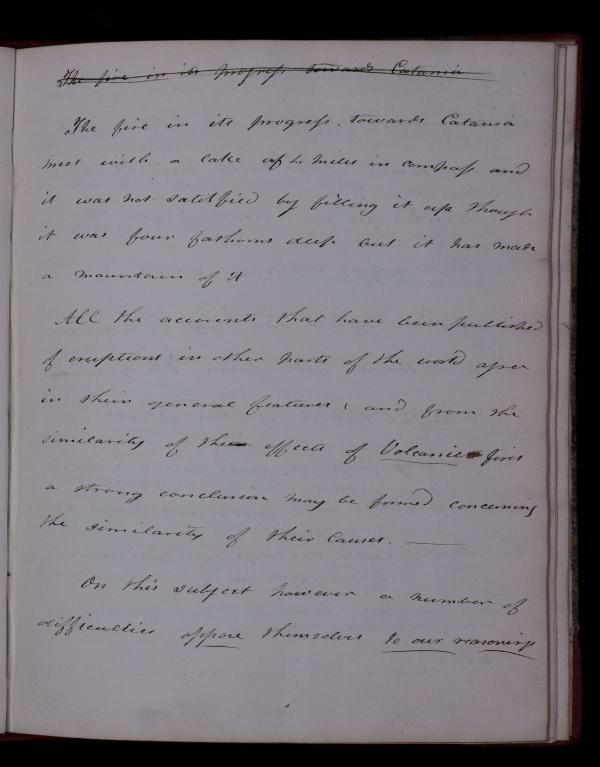 The fire in its progress towards Catania
The fire in its progress towards Catania
meet with a lake of 4 miles in compass and
it was not satisfied by filling it up though
it was four fathoms deep but it has made
a mountain of it
All the accounts that have been published
of eruptions in other parts of the world agree
in their general features; and from the
similarity of the effects of Volcanic fires
a strong conclusion may be formed concerning
the similarity of their causes. —
On this subject however a number of
difficulties oppose themselves to our reasonings